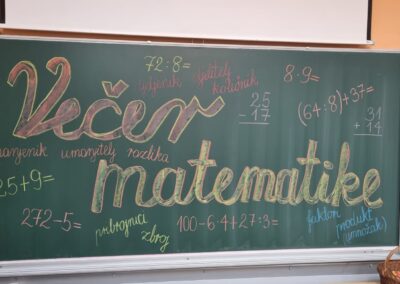 72:8=
djeljenik djelitelj
količnik
8·9=
Večer
25
-17
(64:8)+37=
31
+14
umanjenik umanjitelj razlika
25+9=
matematike
272-5=
pribrojnici
zbroj
100-6·4+27:3=
faktori
produkt
(umnožak)